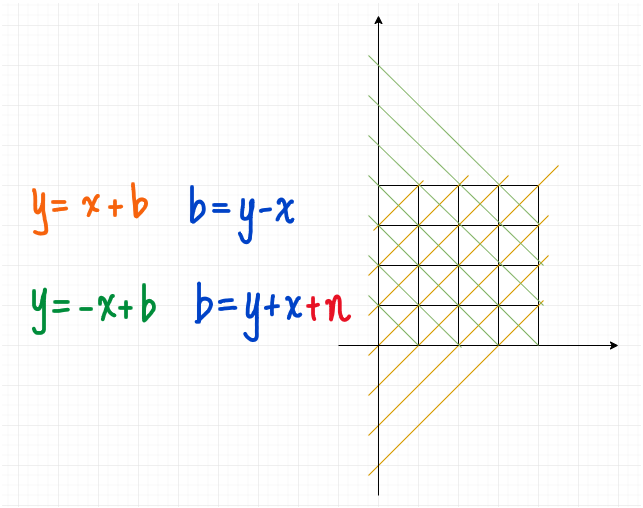 y = x + b b = y - x
y = -x + b b = y + x + n